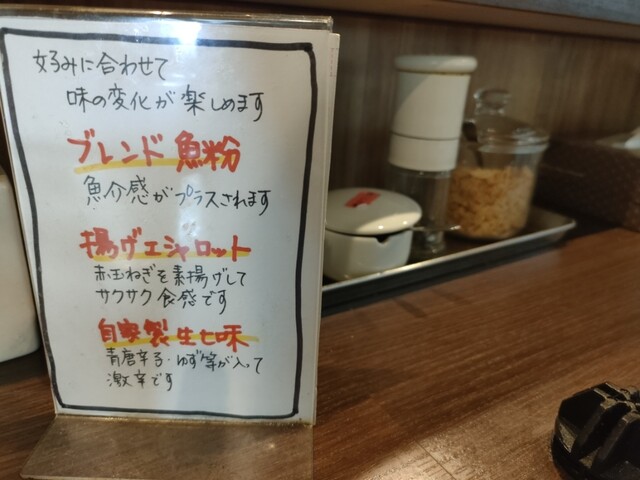 好みに合わせて
味の変化が楽しめます
ブレンド魚粉
魚介感がプラスされます
揚げエシャロット
赤玉ねぎを素揚げして
サクサク食感です
自家製生七味
青唐辛子・ゆず等が入って
激辛です